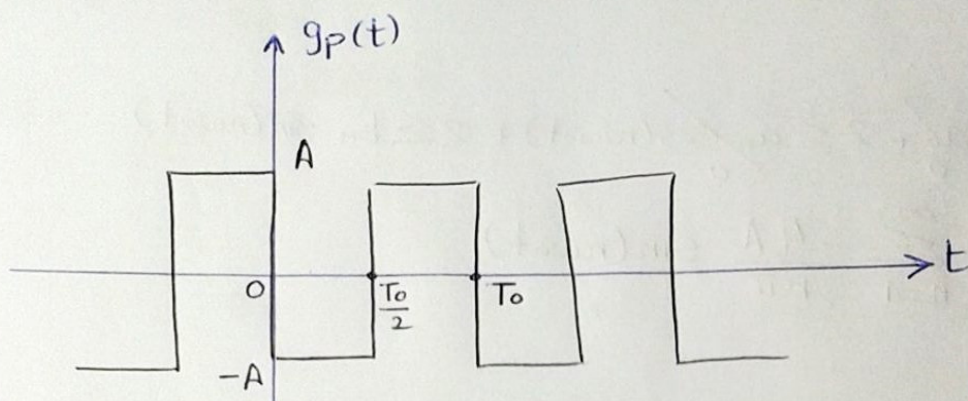 gp(t)
A
0
To/2
To
t
-A